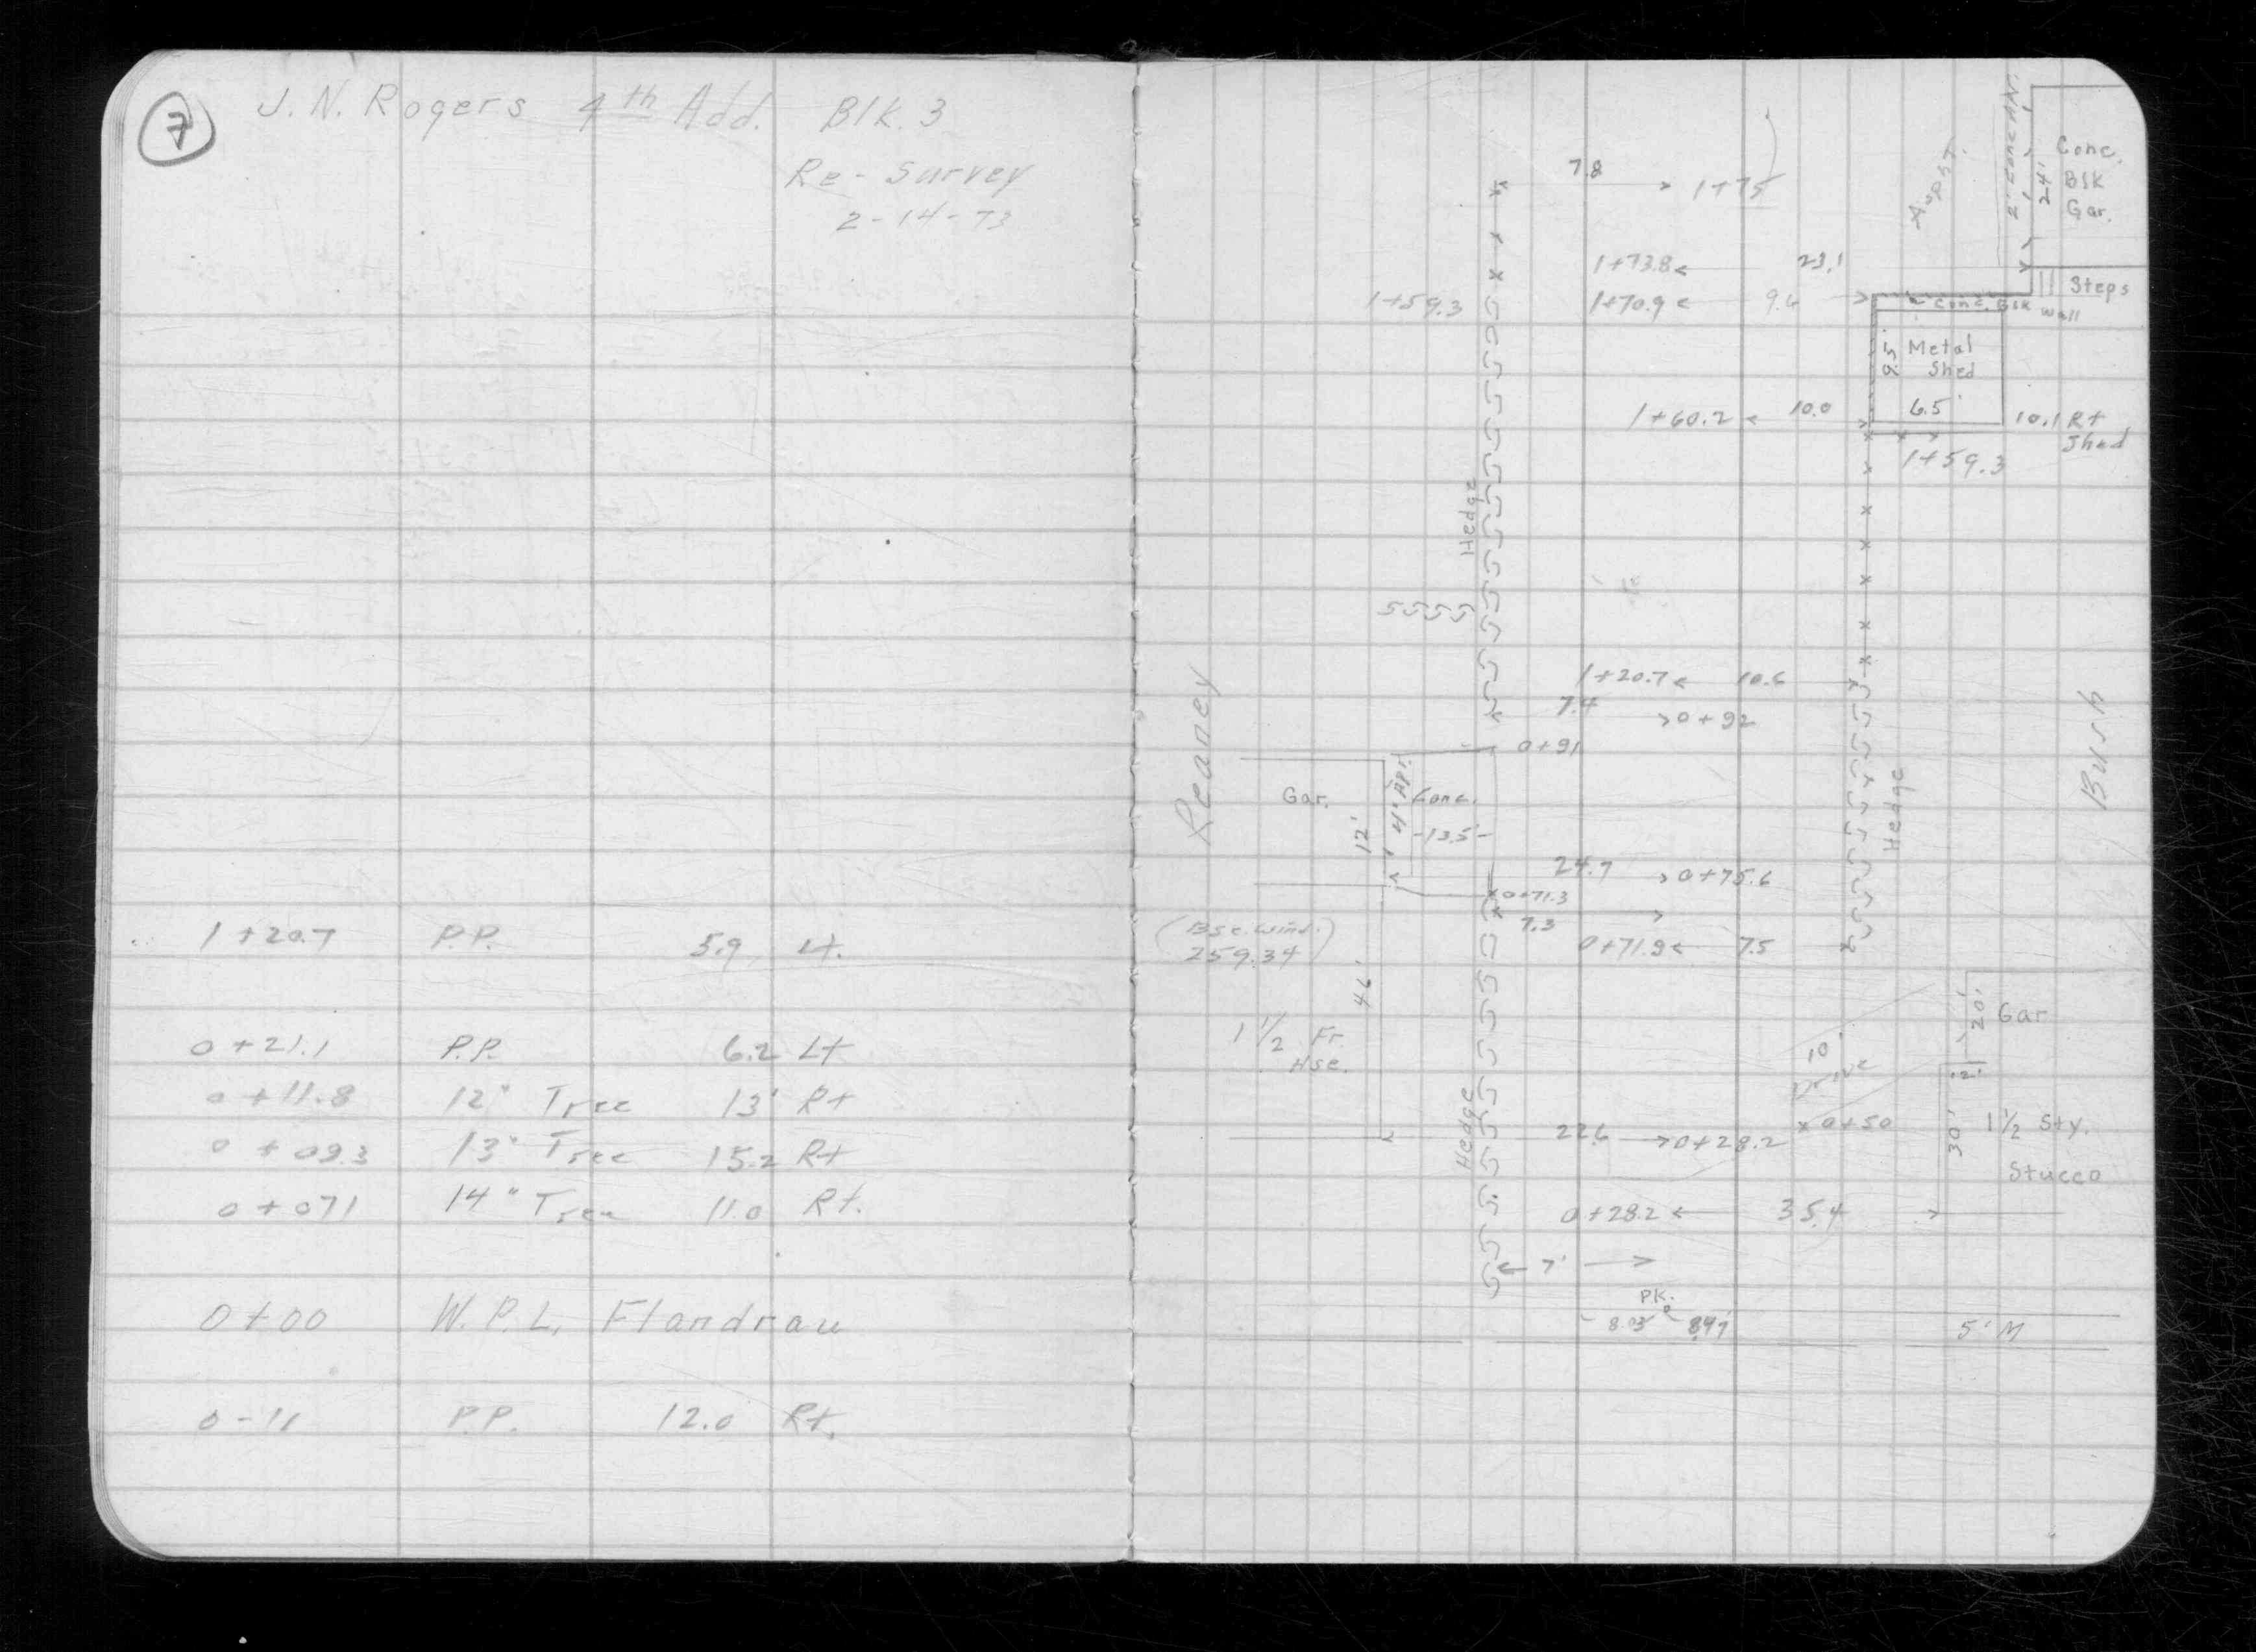 7
J. N. Rogers 4th Add. Blk. 3
Re-Survey
2-14-73
1+20.7 P.P. 5.9 Lt.
0+21.1 P.P. 6.2 Lt
0+11.8 12" Tree 13' Rt
0+09.3 13" Tree 15.2 Rt
0+071 14" Tree 11.0 Rt.
0+00 W.P.L. Flandrau
0-11 P.P. 12.0 Rt.
Conc.
24' Blk
Gar.
7.8 1+75
1+73.8 29.1
Steps
1+59.3 1+70.9 9.6
Conc. Blk Wall
9.5' Metal
Shed
1+60.2 10.0 6.5' 10.1 Rt
Shed
1+59.3
Hedge
Reaney
Bush
1+20.7 10.6
7.4 0+92
0+91
Gar. 12' Conc.
-13.5'-
Hedge
24.7 0+75.6
0+71.3
7.3
(Bse. Wind.)
259.34
0+71.9 7.5
46'
20' Gar
1 1/2 Fr.
Hse.
10'
Drive
12'
Hedge
22.6 0+28.2
x 0+50
30' 1 1/2 Sty.
Stucco
0+28.2 35.4
7'
PK.
8.03 8.47
5' M